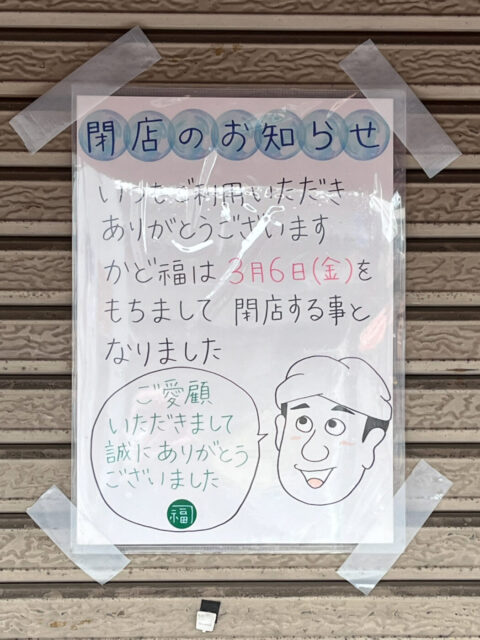 閉店のお知らせ
いつもご利用いただき
ありがとうございます
かど福は3月6日(金)を
もちまして 閉店する事と
なりました
ご愛顧
いただきまして
誠にありがとう
ございました
福